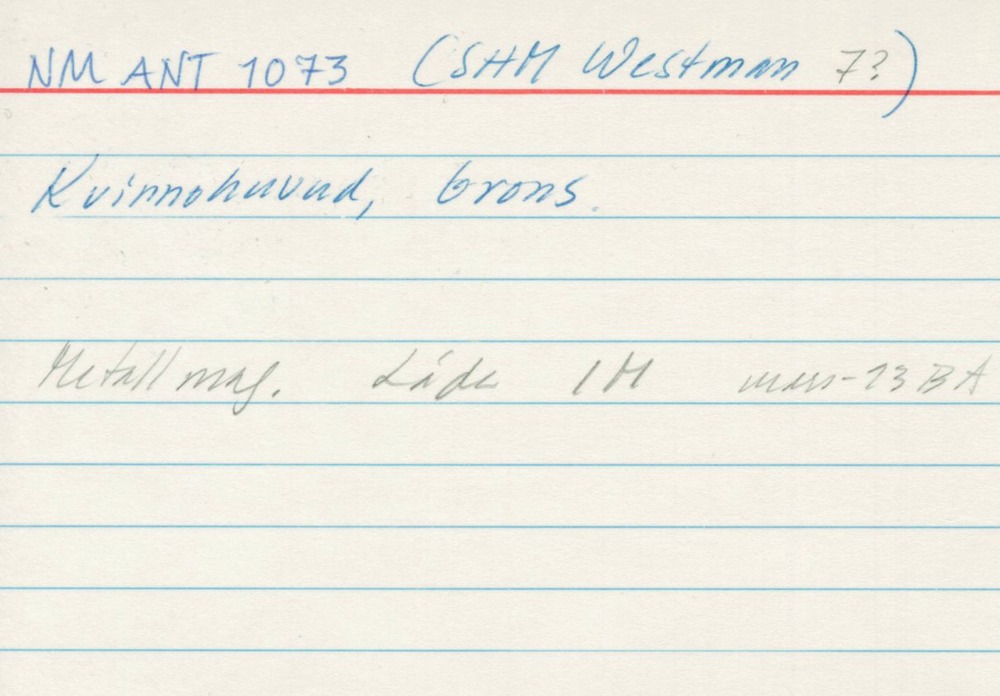 NM ANT 1073 (SHM Westman 7?)
Kvinnohuvud, brons.
Metallmag. Låda 1M mars-13 BA